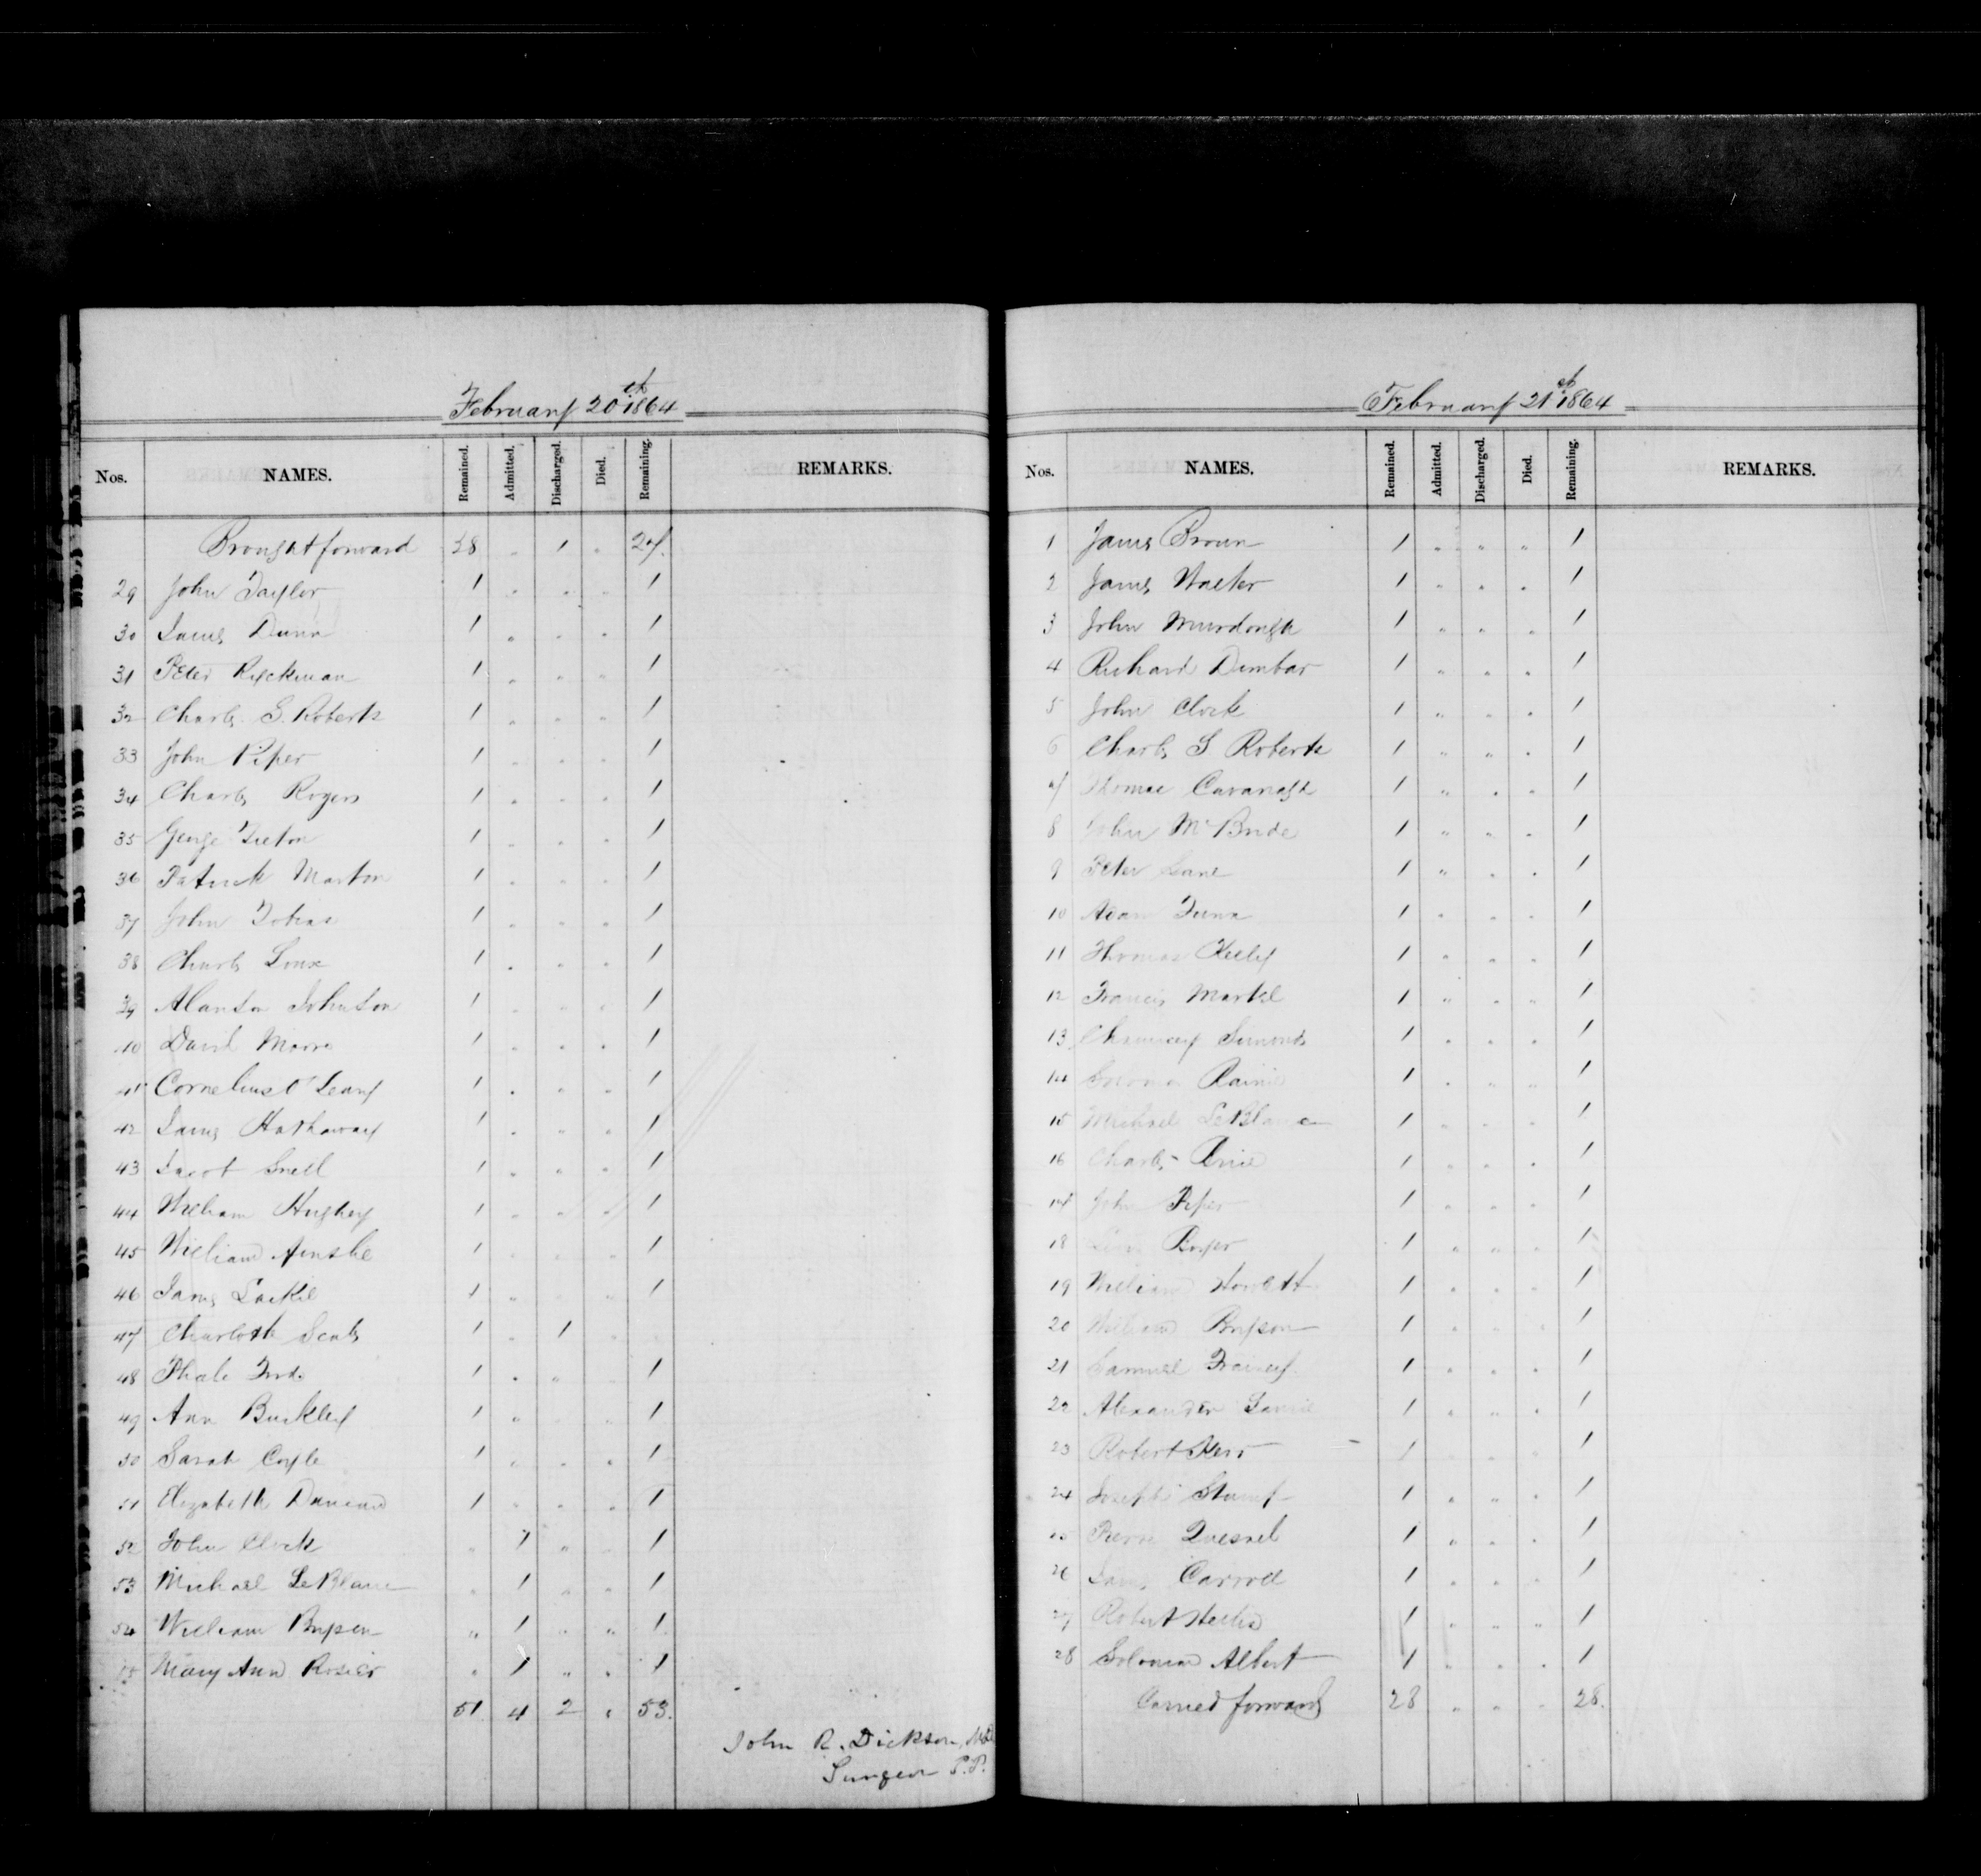 February 20th 1864
Nos. NAMES. Remained. Admitted. Discharged. Died. Remaining. REMARKS.
Brought forward 28 " 1 " 27.
29 John Taylor 1 " " " 1
30 James Dunn 1 " " " 1
31 Peter Ryckman 1 " " " 1
32 Charles S. Roberts 1 " " " 1
33 John Piper 1 " " " 1
34 Charles Rogers 1 " " " 1
35 George 1 " " " 1
36 Patrick Marton 1 " " " 1
37 John Tobias 1 " " " 1
38 Charles 1 " " " 1
39 Alanson Johnston 1 " " " 1
40 David 1 " " " 1
41 Cornelius O'Leary 1 " " " 1
42 James Hathaway 1 " " " 1
43 Jacob Snell 1 " " " 1
44 William Hughey 1 " " " 1
45 William Ainslie 1 " " " 1
46 James Lackie 1 " " " 1
47 Charlotte 1 " 1 "
48 Ford 1 " " " 1
49 Ann Buckley 1 " " " 1
50 Sarah Coyle 1 " " " 1
51 Elizabeth Duncan 1 " " " 1
52 John Clock " 1 " " 1
53 Michael LeBlanc " 1 " " 1
54 William Bryson " 1 " " 1
55 Mary Ann Rosier " 1 " " 1
51 4 2 " 53.
John R. Dickson, M.D.
Surgeon P.P.
February 21st 1864
Nos. NAMES. Remained. Admitted. Discharged. Died. Remaining. REMARKS.
1 James Brown 1 " " " 1
2 James Walker 1 " " " 1
3 John Murdough 1 " " " 1
4 Richard Dunbar 1 " " " 1
5 John Clock 1 " " " 1
6 Charles S Roberts 1 " " " 1
7 Thomas Cavanagh 1 " " " 1
8 John McBride 1 " " " 1
9 Peter Lane 1 " " " 1
10 Adam 1 " " " 1
11 Thomas Keeley 1 " " " 1
12 Francis Markle 1 " " " 1
13 Chauncey Simonds 1 " " " 1
14 Solomon 1 " " " 1
15 Michael LeBlanc 1 " " " 1
16 Charles Price 1 " " " 1
17 John Piper 1 " " " 1
18 1 " " " 1
19 William Howlett 1 " " " 1
20 William Bryson 1 " " " 1
21 Samuel 1 " " " 1
22 Alexander 1 " " " 1
23 Robert Kerr 1 " " " 1
24 Joseph Stump 1 " " " 1
25 Pierre Quesnel 1 " " " 1
26 James Carroll 1 " " " 1
27 Robert 1 " " " 1
28 Solomon Albert 1 " " " 1
Carried forward 28 " " " 28.